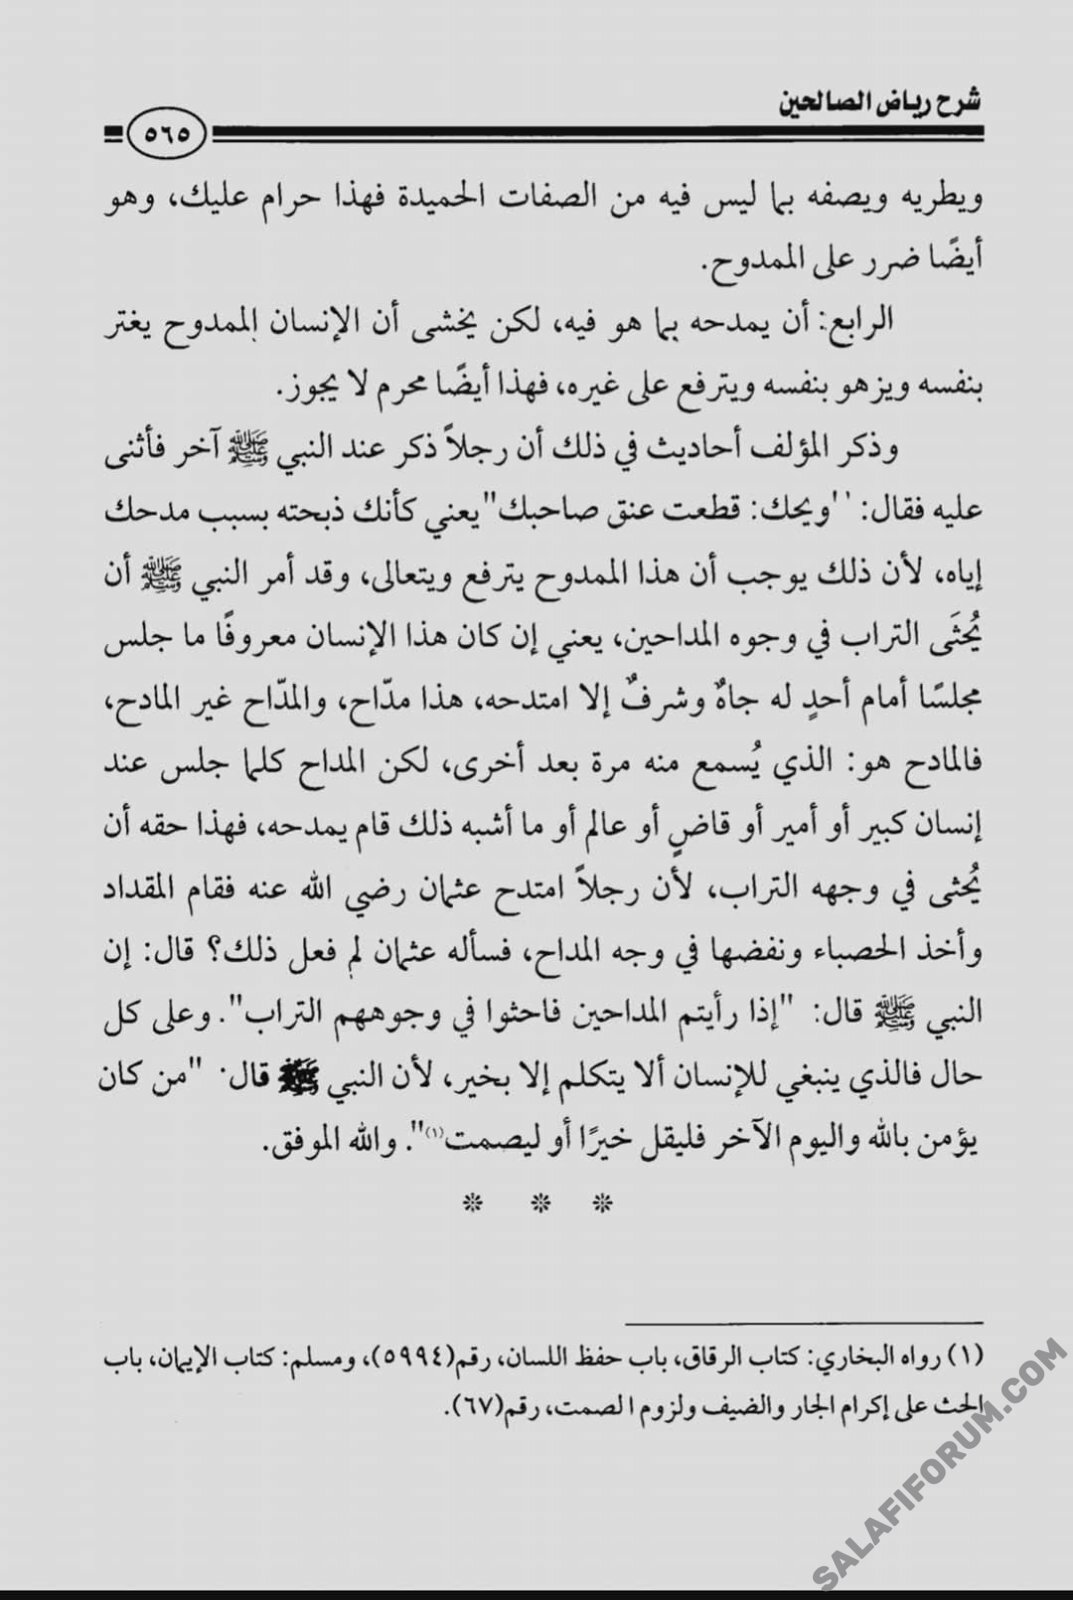 شرح رياض الصالحين
٥٦٥
ويطريه ويصفه بما ليس فيه من الصفات الحميدة فهذا حرام عليك، وهو
أيضًا ضرر على الممدوح.
الرابع: أن يمدحه بما هو فيه، لكن يخشى أن الإنسان الممدوح يغتر
بنفسه ويزهو بنفسه ويترفع على غيره، فهذا أيضًا محرم لا يجوز.
وذكر المؤلف أحاديث في ذلك أن رجلاً ذكر عند النبي ﷺ آخر فأثنى
عليه فقال: ''ويحك: قطعت عنق صاحبك" يعني كأنك ذبحته بسبب مدحك
إياه، لأن ذلك يوجب أن هذا الممدوح يترفع ويتعالى، وقد أمر النبي ﷺ أن
يُحثَى التراب في وجوه المداحين، يعني إن كان هذا الإنسان معروفًا ما جلس
مجلسًا أمام أحدٍ له جاهٌ وشرفٌ إلا امتدحه، هذا مدّاح، والمدّاح غير المادح،
فالمادح هو: الذي يُسمع منه مرة بعد أخرى، لكن المداح كلما جلس عند
إنسان كبير أو أمير أو قاضٍ أو عالم أو ما أشبه ذلك قام يمدحه، فهذا حقه أن
يُحثى في وجهه التراب، لأن رجلاً امتدح عثمان رضي الله عنه فقام المقداد
وأخذ الحصباء ونفضها في وجه المداح، فسأله عثمان لم فعل ذلك؟ قال: إن
النبي ﷺ قال: "إذا رأيتم المداحين فاحثوا في وجوههم التراب". وعلى كل
حال فالذي ينبغي للإنسان ألا يتكلم إلا بخير، لأن النبي ﷺ قال· "من كان
يؤمن بالله واليوم الآخر فليقل خيرًا أو ليصمت(١)". والله الموفق.
* * *
(١) رواه البخاري: كتاب الرقاق، باب حفظ اللسان، رقم(٥٩٩٤)، ومسلم: كتاب الإيمان، باب
الحث على إكرام الجار والضيف ولزوم الصمت، رقم(٦٧).
SALAFIFORUM.COM